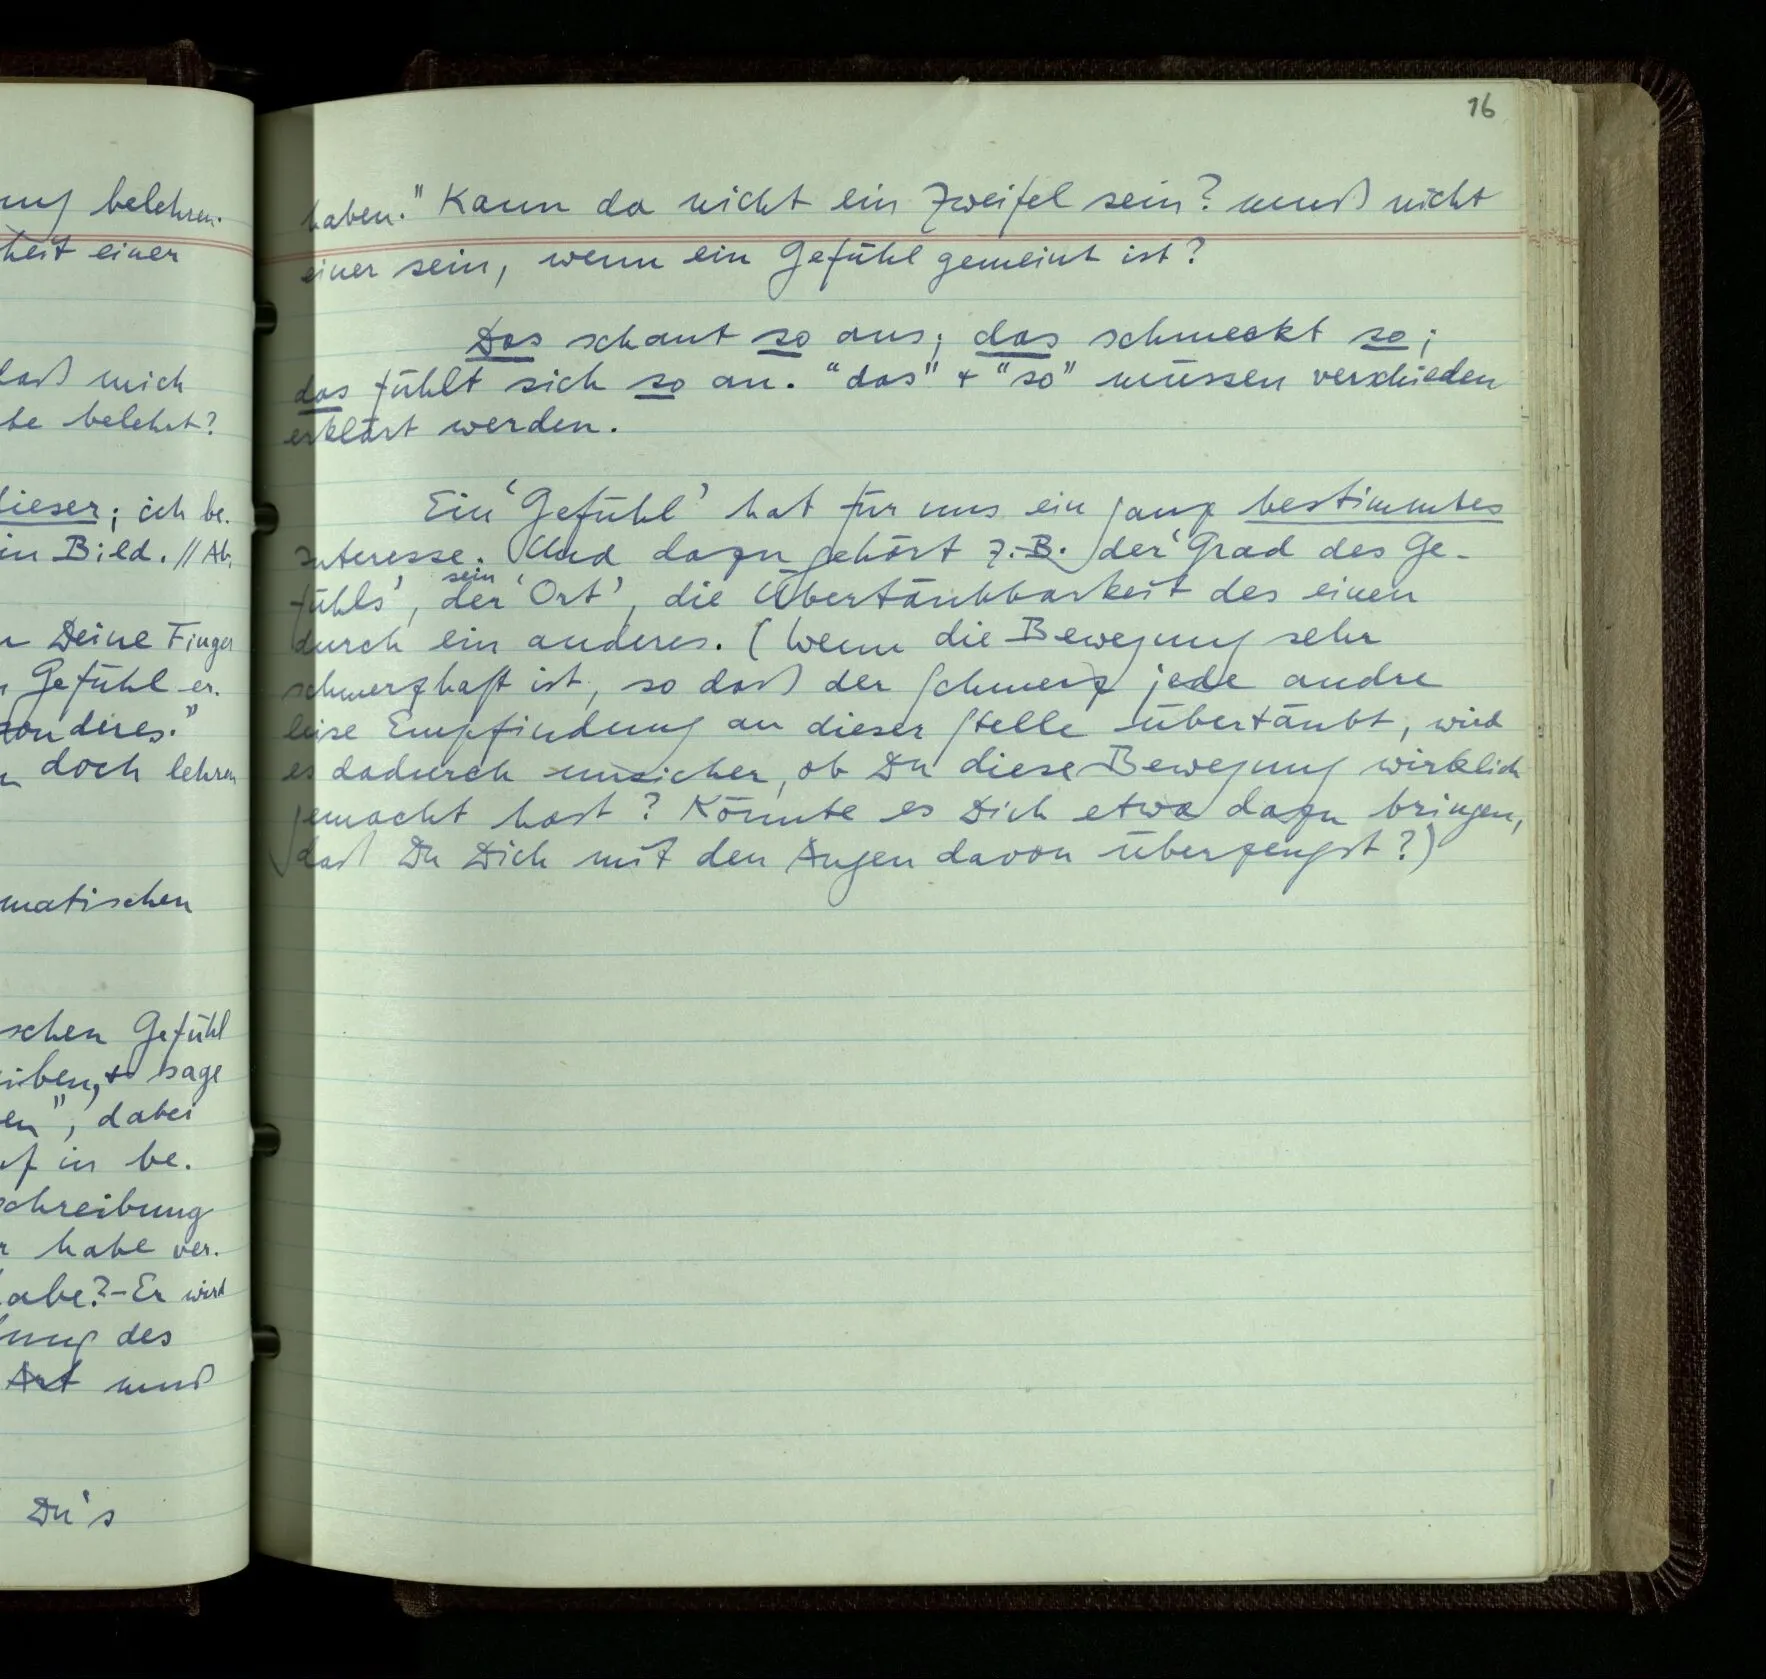 ung belehren.
heit einer
daß mich
be belehrt?
dieser; ich be.
in Bild. // Ab,
Deine Finger
Gefühl er.
sonderes."
doch lehren
matischen
schen Gefühl
iben, + sage
en", dabei
in be.
schreibung
r habe ver.
habe? – Er wird
ung des
Art muß
Du's
16
haben." Kann da nicht ein Zweifel sein? muß nicht
einer sein, wenn ein Gefühl gemeint ist?
Das schaut so aus; das schmeckt so;
das fühlt sich so an. "das" + "so" müssen verschieden
erklärt werden.
Ein 'Gefühl' hat für uns ein ganz bestimmtes
Interesse. Und dazu gehört z.B. der 'Grad des Ge-
sein
fühls', der 'Ort', die Übertäubbarkeit des einen
durch ein anderes. (Wenn die Bewegung sehr
schmerzhaft ist, so daß der Schmerz jede andre
leise Empfindung an dieser Stelle übertäubt, wird
es dadurch unsicher, ob Du diese Bewegung wirklich
gemacht hast? Könnte es Dich etwa dazu bringen,
daß Du Dich mit den Augen davon überzeugst?)